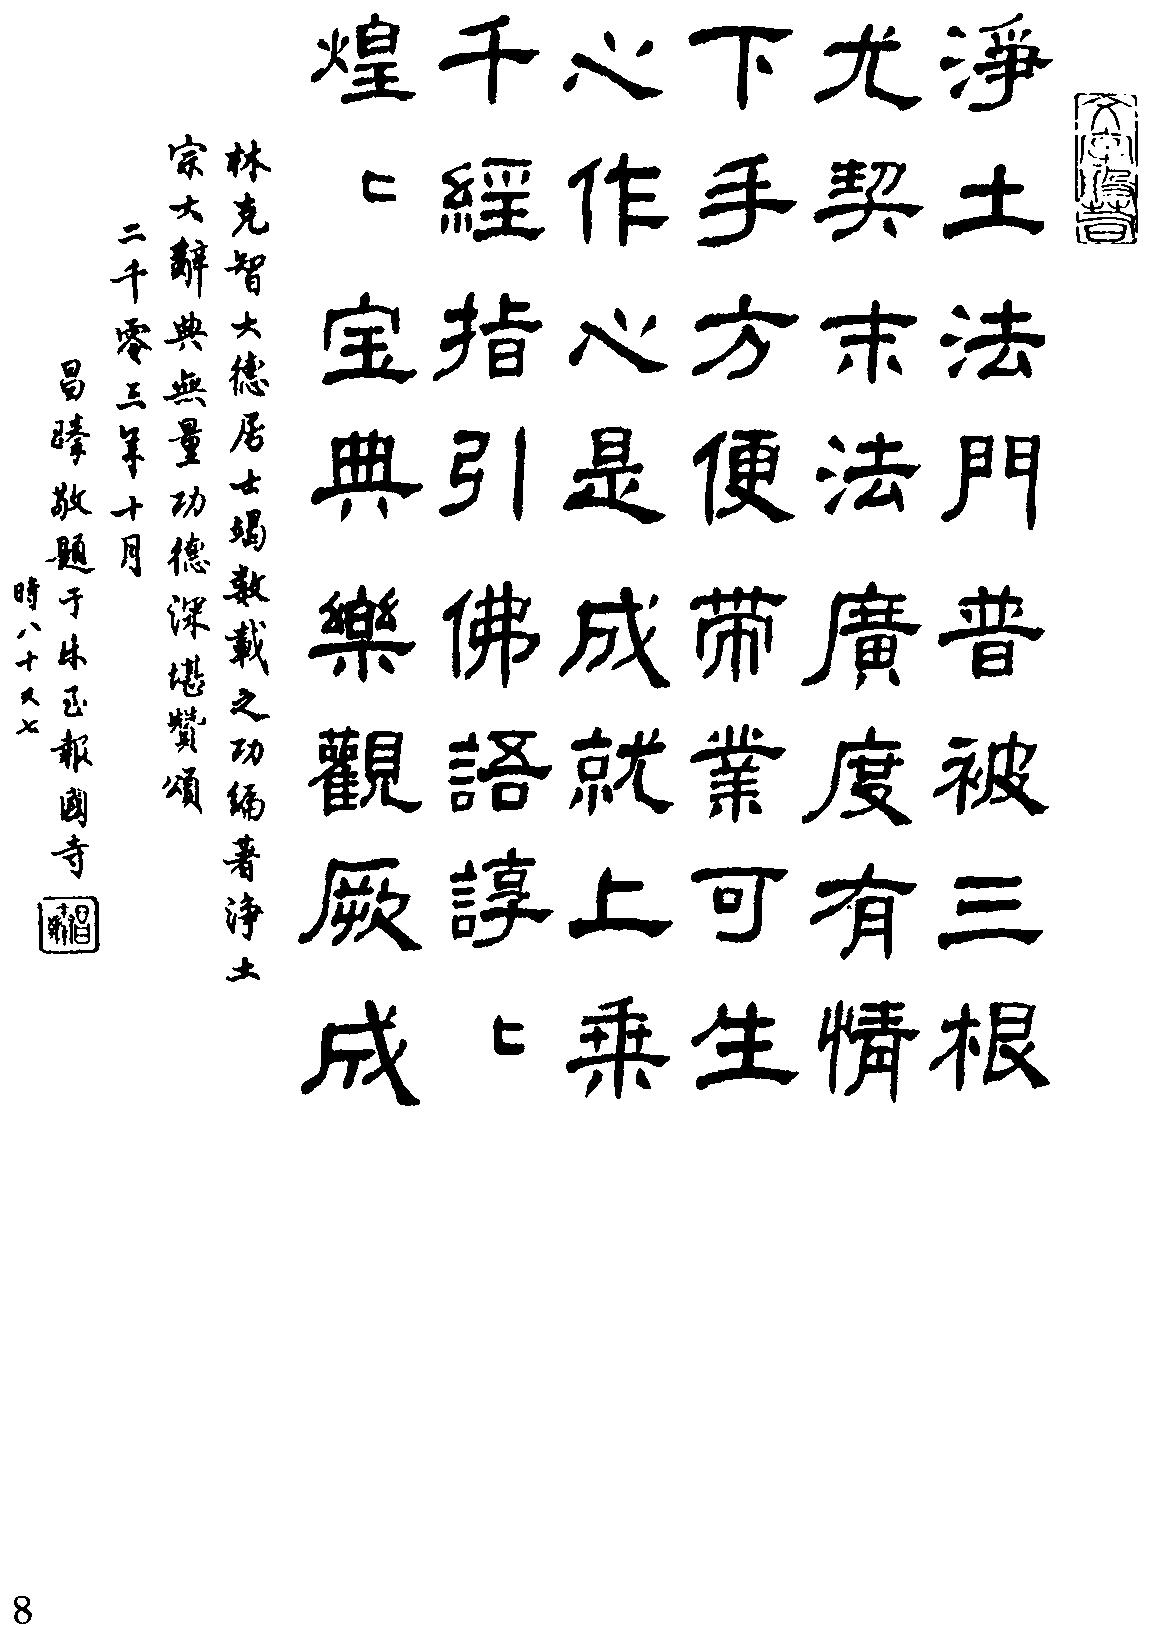 淨土法門普被三根
尤契末法廣度有情
下手方便带業可生
心作心是成就上乗
千經指引佛語諄〻
煌〻宝典樂觀厥成
林克智大德居士竭數載之功編著净土
宗大辭典無量功德深堪贊頌
二千零三年十月
昌臻敬題于乐至報國寺
時八十又七
昌臻
8